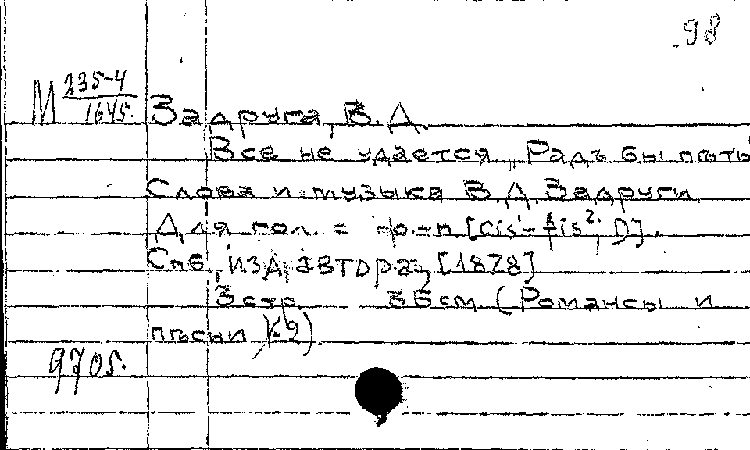 98
М 235-4
1645.
Задруга, В. Д.
Все не удается, „Радъ бы пѣть
Слова и музыка В. Д. Задруги
Для гол. с ф-п [cis'-fis², D].
Спб, изд автора, [1878]
3 стр 36 см (Романсы и
пѣсни, №2)
9705.